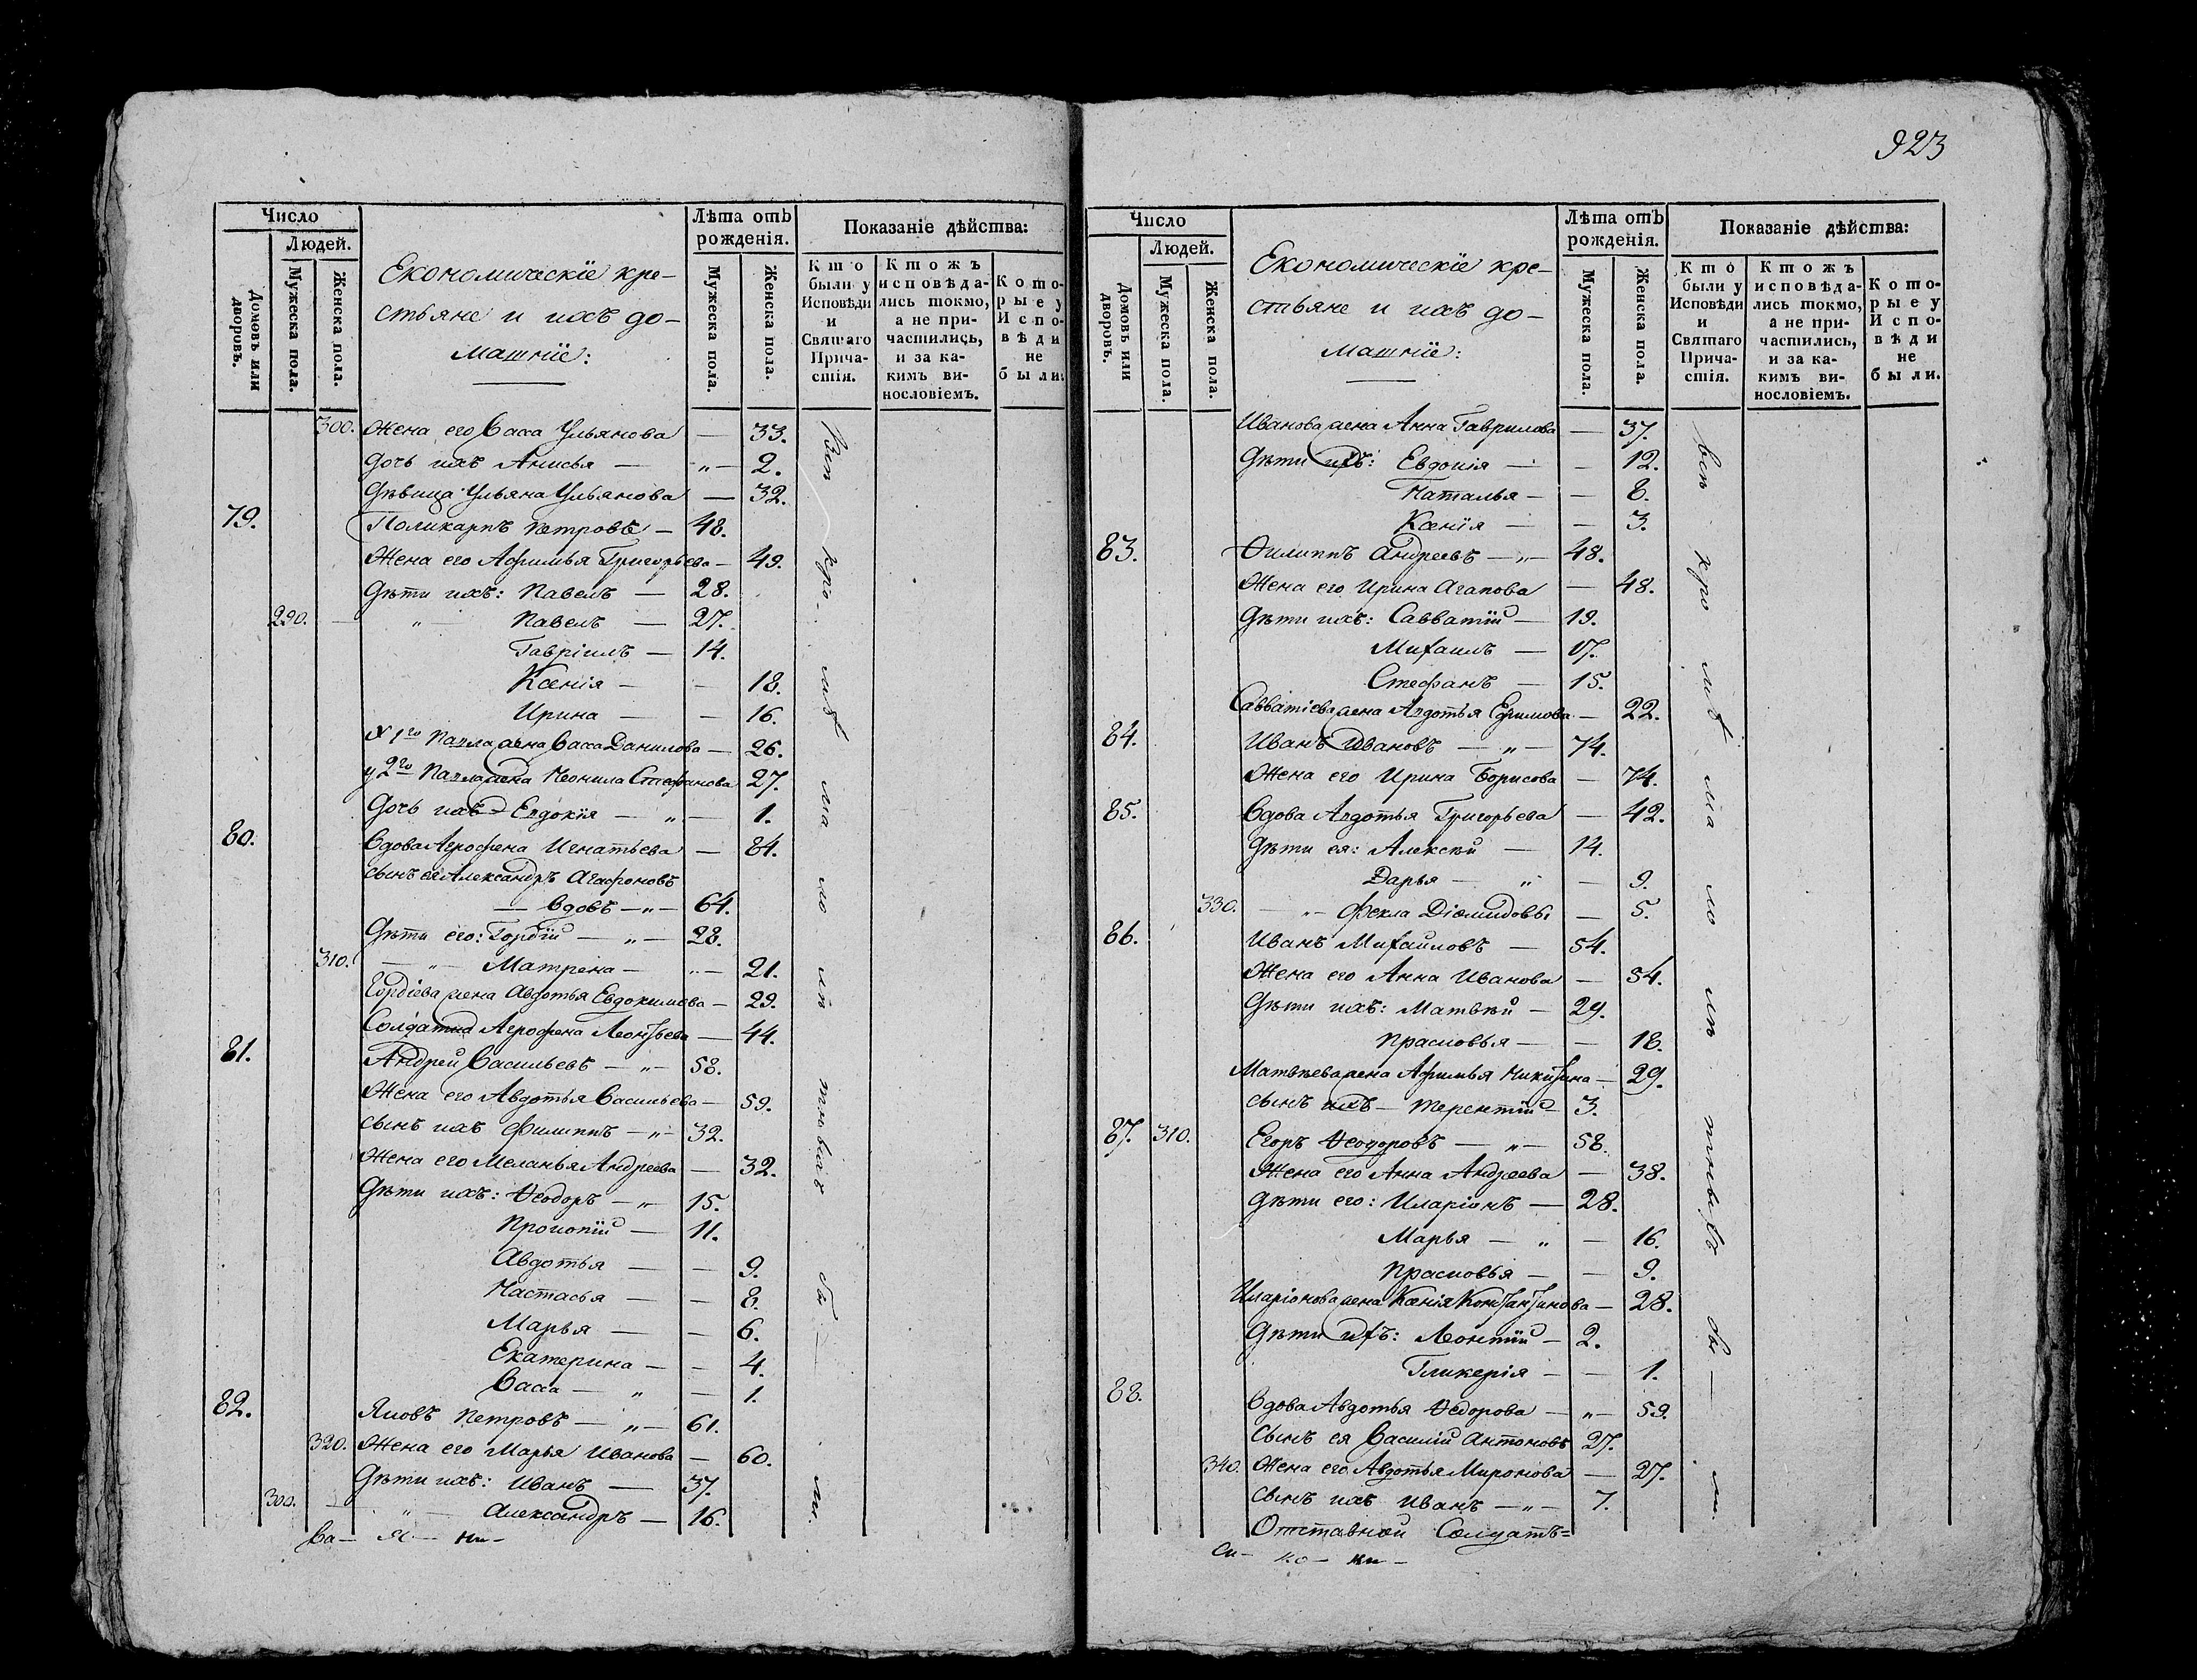 Число
Людей.
Домовъ или дворовъ.
Мужеска пола.
Женска пола.
Економическіе кре-
стьяне и ихъ до-
машніе:
Лѣта отъ рожденія.
Мужеска пола.
Женска пола.
Показаніе дѣйства:
Кто были у Исповѣди и Святаго Прича-стія.
Ктожъ исповѣда-лись токмо, а не при-частились, и за ка-кимъ ви-нословіемъ.
Кото-рые у Испо-вѣди не были.
300. Жена его Васса Ульянова — 33.
Дочь ихъ Анисья — „ — 2.
Дѣвица Ульяна Ульянова — 32.
79. Поликарпъ Петровъ — 48.
Жена его Афимья Григорьева — 49.
Дѣти ихъ: Павелъ — 28.
290. — „ — Павелъ — 27.
Гавріилъ — 14.
Ксенія — — 18.
Ирина — — 16.
У 1го Павла жена Васса Данилова — 26.
У 2го Павла жена Неонила Стефанова 27.
Дочь ихъ — Евдокія — „ — 1.
80. Вдова Агрофена Игнатьева — 84.
Сынъ ея Александръ Агафоновъ
— вдовъ — „ — 64.
Дѣти его: Гордій — „ — 28.
310. — „ — Матрена — „ — 21.
Гордіева жена Авдотья Евдокимова — 29.
Солдатка Агрофена Леонтьева — 44.
81. Андрей Васильевъ — „ — 58.
Жена его Авдотья Васильева — 59.
Сынъ ихъ Филиппъ — „ — 32.
Жена его Меланья Андреева — 32.
Дѣти ихъ: Ѳеодоръ — „ 15.
Прокопій — 11.
Авдотья — — 9.
Настасья — — 8.
Марья — — 6.
Екатерина — — 4.
Васса — „ — 1.
82. Яковъ Петровъ — „ — 61.
320. Жена его Марья Иванова — 60.
Дѣти ихъ: Иванъ — 37.
300. — „ — Александръ — 16.
Всѣ кро- мѣ ма ло лѣ тныхъ бы — ли.
Ва — ни —
923
Число
Людей.
Домовъ или дворовъ.
Мужеска пола.
Женска пола.
Економическіе кре-
стьяне и ихъ до-
машніе:
Лѣта отъ рожденія.
Мужеска пола.
Женска пола.
Показаніе дѣйства:
Кто были у Исповѣди и Святаго Прича-стія.
Ктожъ исповѣда-лись токмо, а не при-частились, и за ка-кимъ ви-нословіемъ.
Кото-рые у Испо-вѣди не были.
Иванова жена Анна Гаврилова — 37.
Дѣти ихъ: Евдокія — — 12.
Наталья — — 8.
Ксенія — — 3.
83. Филиппъ Андреевъ — „ — 48.
Жена его Ирина Агапова — 48.
Дѣти ихъ: Савватій — 19.
Михаилъ — 17.
Стефанъ — 15.
Савватіева жена Авдотья Ефимова — 22.
84. Иванъ Ивановъ — „ — 74.
Жена его Ирина Борисова — 74.
85. Вдова Авдотья Григорьева — 42.
Дѣти ея: Алексѣй — 14.
Дарья — „ — 9.
330. — „ — Фекла Діомидовы — 5.
86. Иванъ Михайловъ — 54.
Жена его Анна Иванова — 54.
Дѣти ихъ: Матвѣй — 29.
Прасковья — — 18.
Матвѣева жена Афимья Никитина — 29.
Сынъ ихъ — Терентій — 3.
87. 310. Егоръ Ѳеодоровъ — „ — 58.
Жена его Анна Андреева — 38.
Дѣти его: Иларіонъ — 28.
Марья — „ — 16.
Прасковья — — 9.
Иларіонова жена Ксенія Константинова — 28.
Дѣти ихъ: Леонтій — 2.
Гликерія — — 1.
88. Вдова Авдотья Ѳедорова — „ — 59.
Сынъ ея Василій Антоновъ 27.
340. Жена его Авдотья Миронова — 27.
Сынъ ихъ Иванъ — „ — 7.
Отставной Солдатъ=
всѣ кро мѣ ма ло лѣ тныхъ бы — ли.
Си — ко — ни —